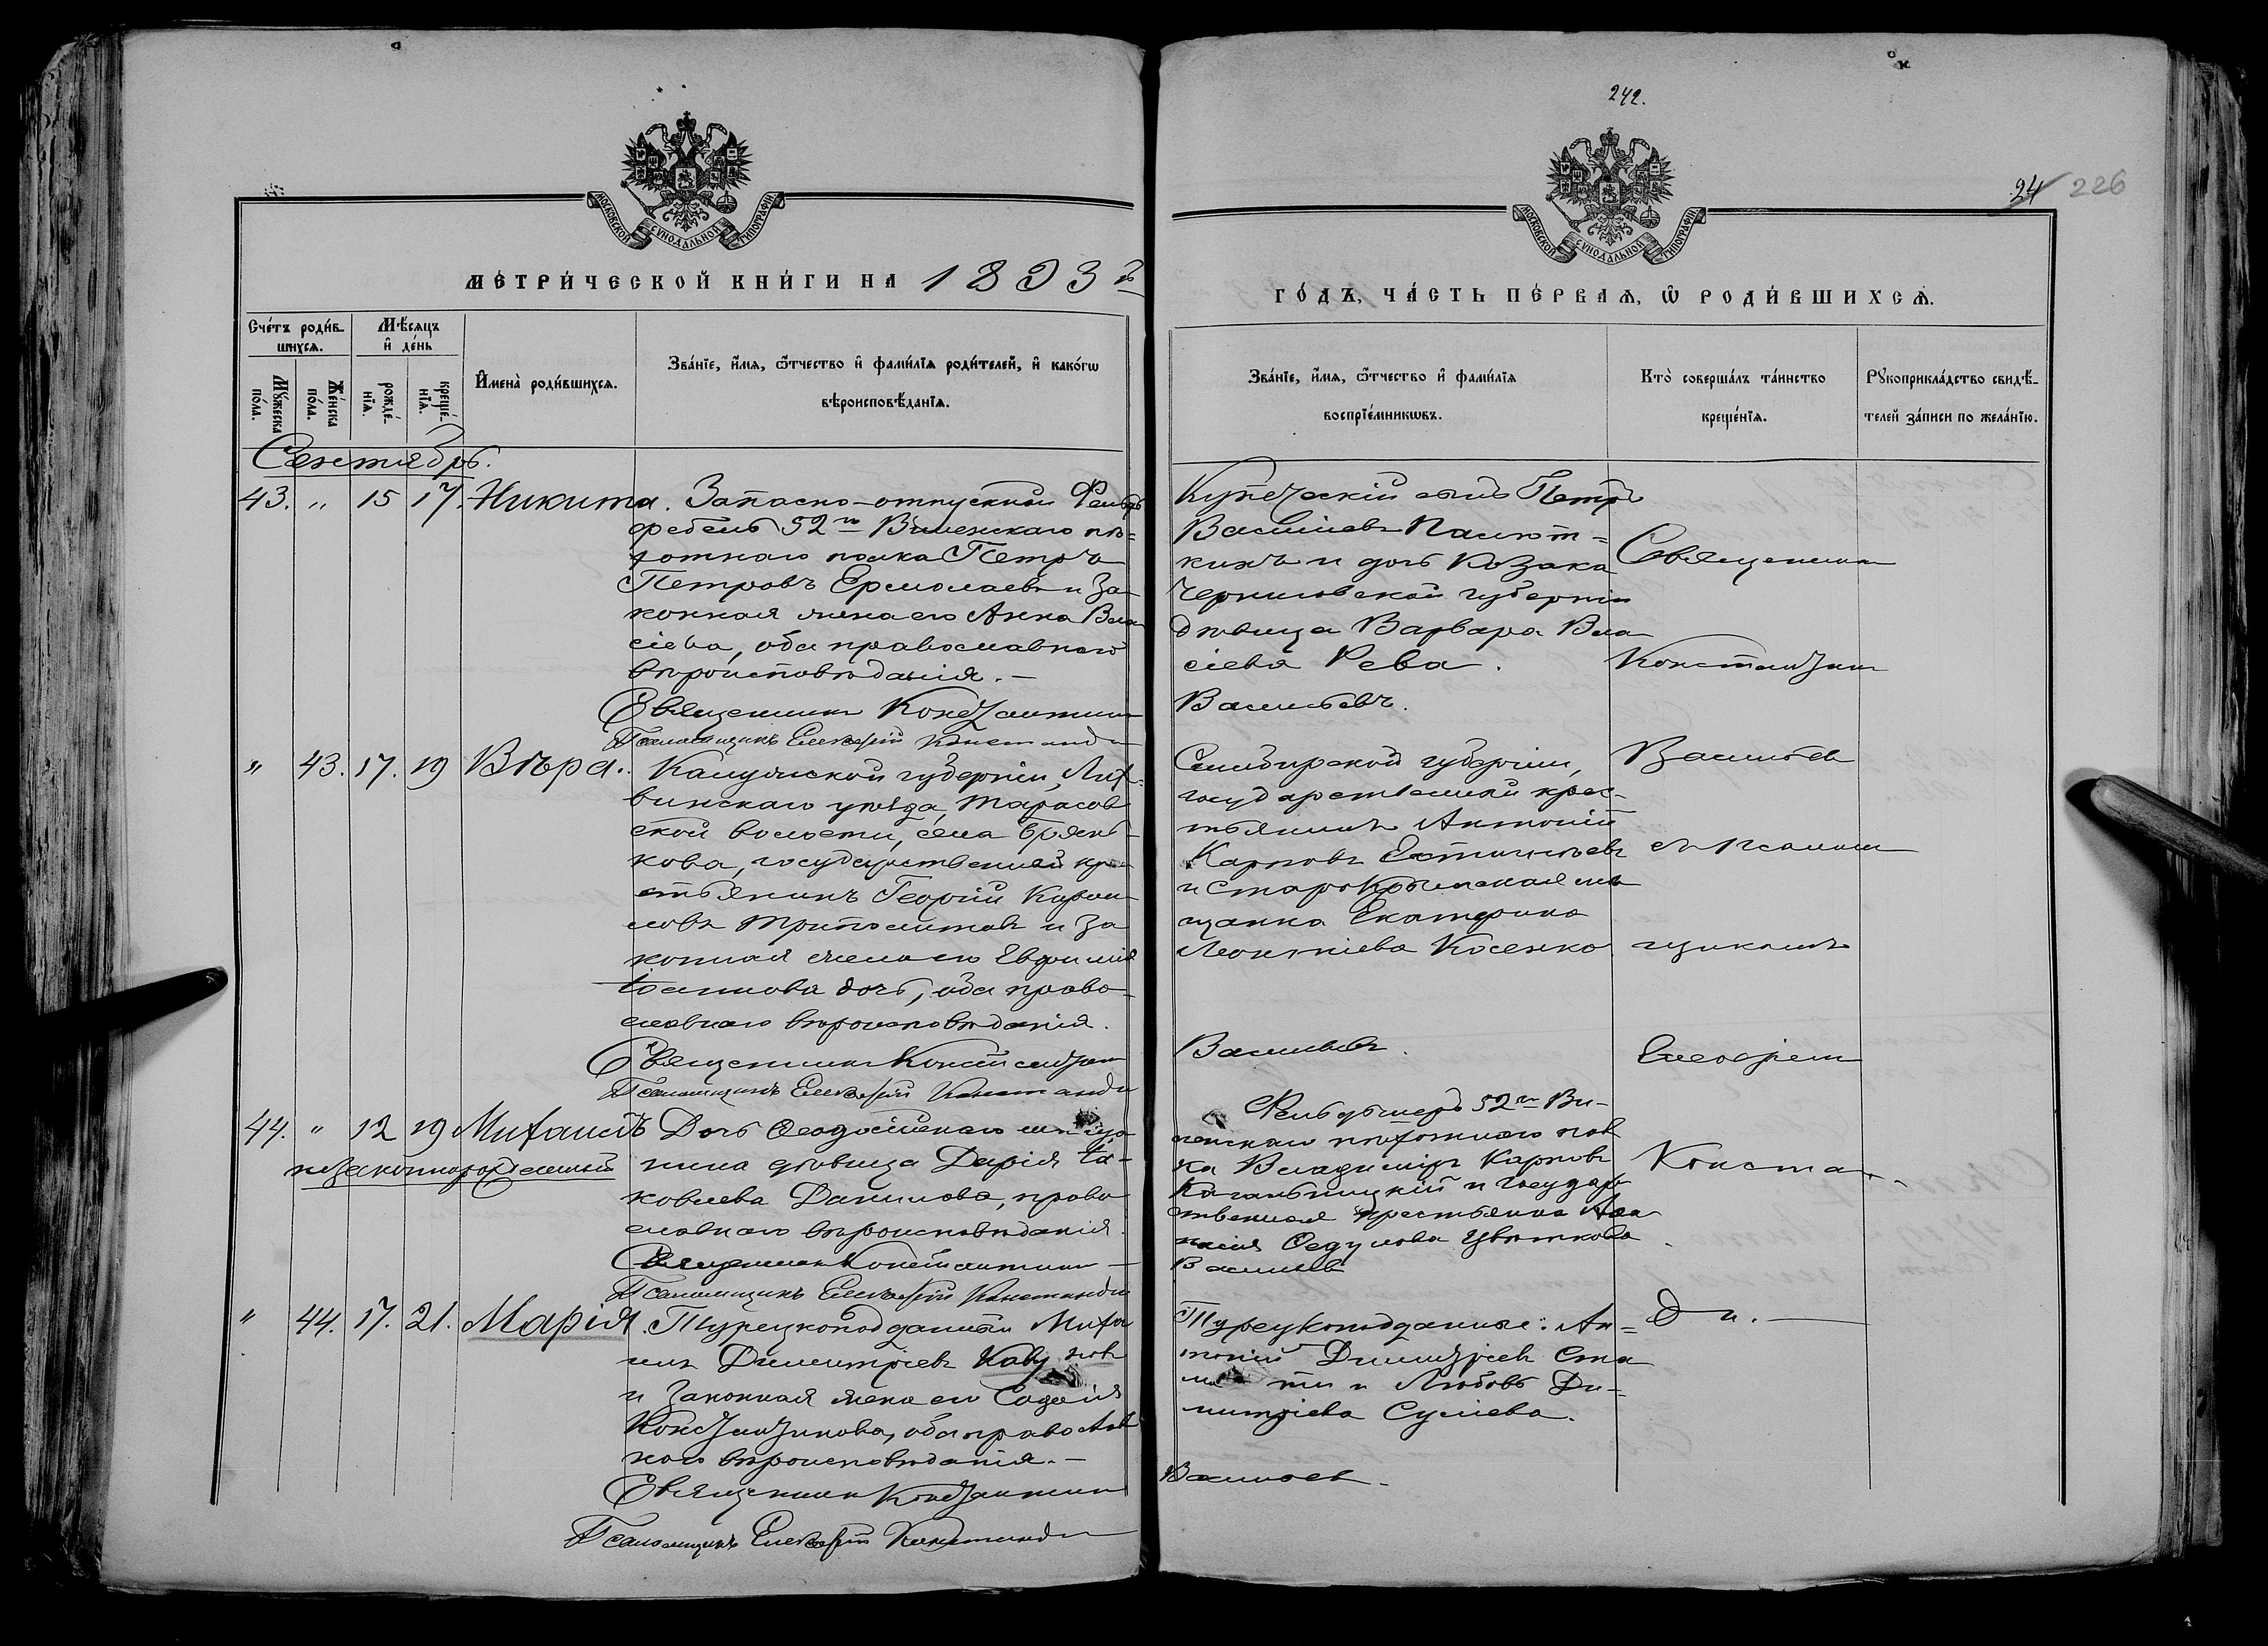 242.
24 226
МОСКОВСКОЙ СѴНОДАЛЬНОЙ ТИПОГРАФІИ
МОСКОВСКОЙ СѴНОДАЛЬНОЙ ТИПОГРАФІИ
МЕТРИ́ЧЕСКОЙ КНИ́ГИ НА 1893 г
ГО́ДЪ, ЧА́СТЬ ПЕ́РВАѦ, Ѽ РОДИ́ВШИХСѦ.
Сче́тъ роди́в-
шихсѧ.
Мѣ́сѧцъ
и҆ де́нь
Мꙋ́жеска
по́ла.
Же́нска
по́ла.
рожде́-
нїѧ.
креще́-
нїѧ.
И҆мена̀ роди́вшихсѧ.
Зва́нїе, и҆́мѧ, ѻ҆́тчество и҆ фами́лїѧ роди́телей, и҆ како́гѡ
вѣроисповѣ́данїѧ.
Зва́нїе, и҆́мѧ, ѻ҆́тчество и҆ фами́лїѧ
воспрїе́мникѡвъ.
Кто̀ соверша́лъ та́инство
креще́нїѧ.
Рꙋкоприкла́дство свидѣ́-
телей за́писи по жела́нїю.
Сентябрь.
43. " 15 17. Никита. Запасно-отпускный Фельд
фебель 52го Виленскаго пѣ=
хотнаго полка Петръ
Петровъ Ермолаевъ и за
конная жена его Анна Вла
сіева, оба православнаго
вѣроисповѣданія. —
Священникъ Константинъ
Псаломщикъ Елевферій Константи
Купеческій сынъ Петръ
Василіевъ
кинъ и дочь Козака
Черниговской губерніи
дѣвица Варвара Вла
сіева Рева.
Васильевъ.
Священникъ
Константинъ
" 43. 17. 19 Вѣра. Калужской губерніи, Лих-
винскаго уѣзда, Тарасов
ской волости, села
кова, государственный кре
стьянинъ Георгій Кирил
ловъ и за
конная жена его Евфимія
Іоаннова дочь, оба право-
славнаго вѣроисповѣданія.
Священникъ Константинъ
Псаломщикъ Елевферій Константи
Симбирской губерніи,
государственный крес-
тьянинъ Антоній
Карповъ
и Старокрымская мѣ
щанка Екатерина
Леонтіева Косенко
Васильевъ.
Васильевъ
съ псалом
щикомъ
Елевферіемъ
44. " 12 19 Михаилъ Дочь Ѳеодосійскаго мѣща
незаконнорожденный нина дѣвица Дарія Іа-
ковлева Данилова, право
славнаго вѣроисповѣданія.
Священникъ Константинъ —
Псаломщикъ Елевферій Константи
Фельдшеръ 52го Ви-
ленскаго пѣхотнаго пол
ка Владиміръ Карповъ
и Государ
ственная крестьянка
Цвѣткова.
Васильевъ
Конста
" 44. 17. 21. Марія. Турецкоподданный Миха
илъ Димитріевъ
и законная жена его Софія
Константинова, оба православ
наго вѣроисповѣданія. —
Священникъ Константинъ
Псаломщикъ Елевферій Константи
Турецкоподданные: Ан=
тоній Димитріевъ Ста
ма ти и Любовь Ди-
митріева Суліева.
Васильевъ.
ди. —